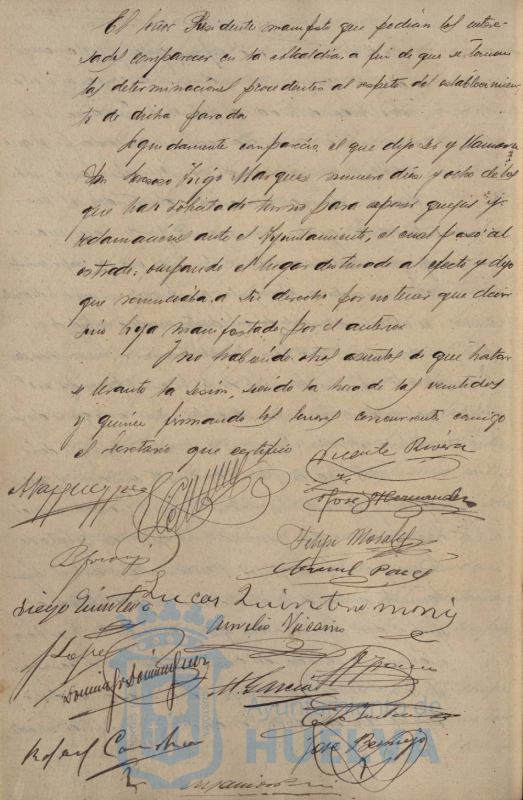 El Señor Presidente manifestó que podían los intere-
sados comparecer en la Alcaldía a fin de que se tomen
las determinaciones procedentes al respeto del establecimien-
to de dicha parada
Seguidamente compareció el que dijo ser y llamarse
Iñigo Marquez numero diez y ocho de los
que han solicitado turno para exponer quejas y
reclamaciones ante el Ayuntamiento, el cual pasó al
estrado, ocupando el lugar destinado al efecto y dijo
que renunciaba a su derecho por no tener que decir
sino lo ya manifestado por el anterior
Y no habiendo otros asuntos de que tratar
se levantó la sesión, siendo la hora de las veintidos
y quince firmando los Señores concurrentes conmigo
el Secretario que certifico
Vicente Rivera
José Hernandez
Felipe Morales
Manuel Ponce
Diego Quintero
Lucas Quintero
Aurelio Vizcaino
J Lopez
Domingo Dominguez
H. Garcia
Rafael
José Bermejo
Ayuntamiento de
HUELVA